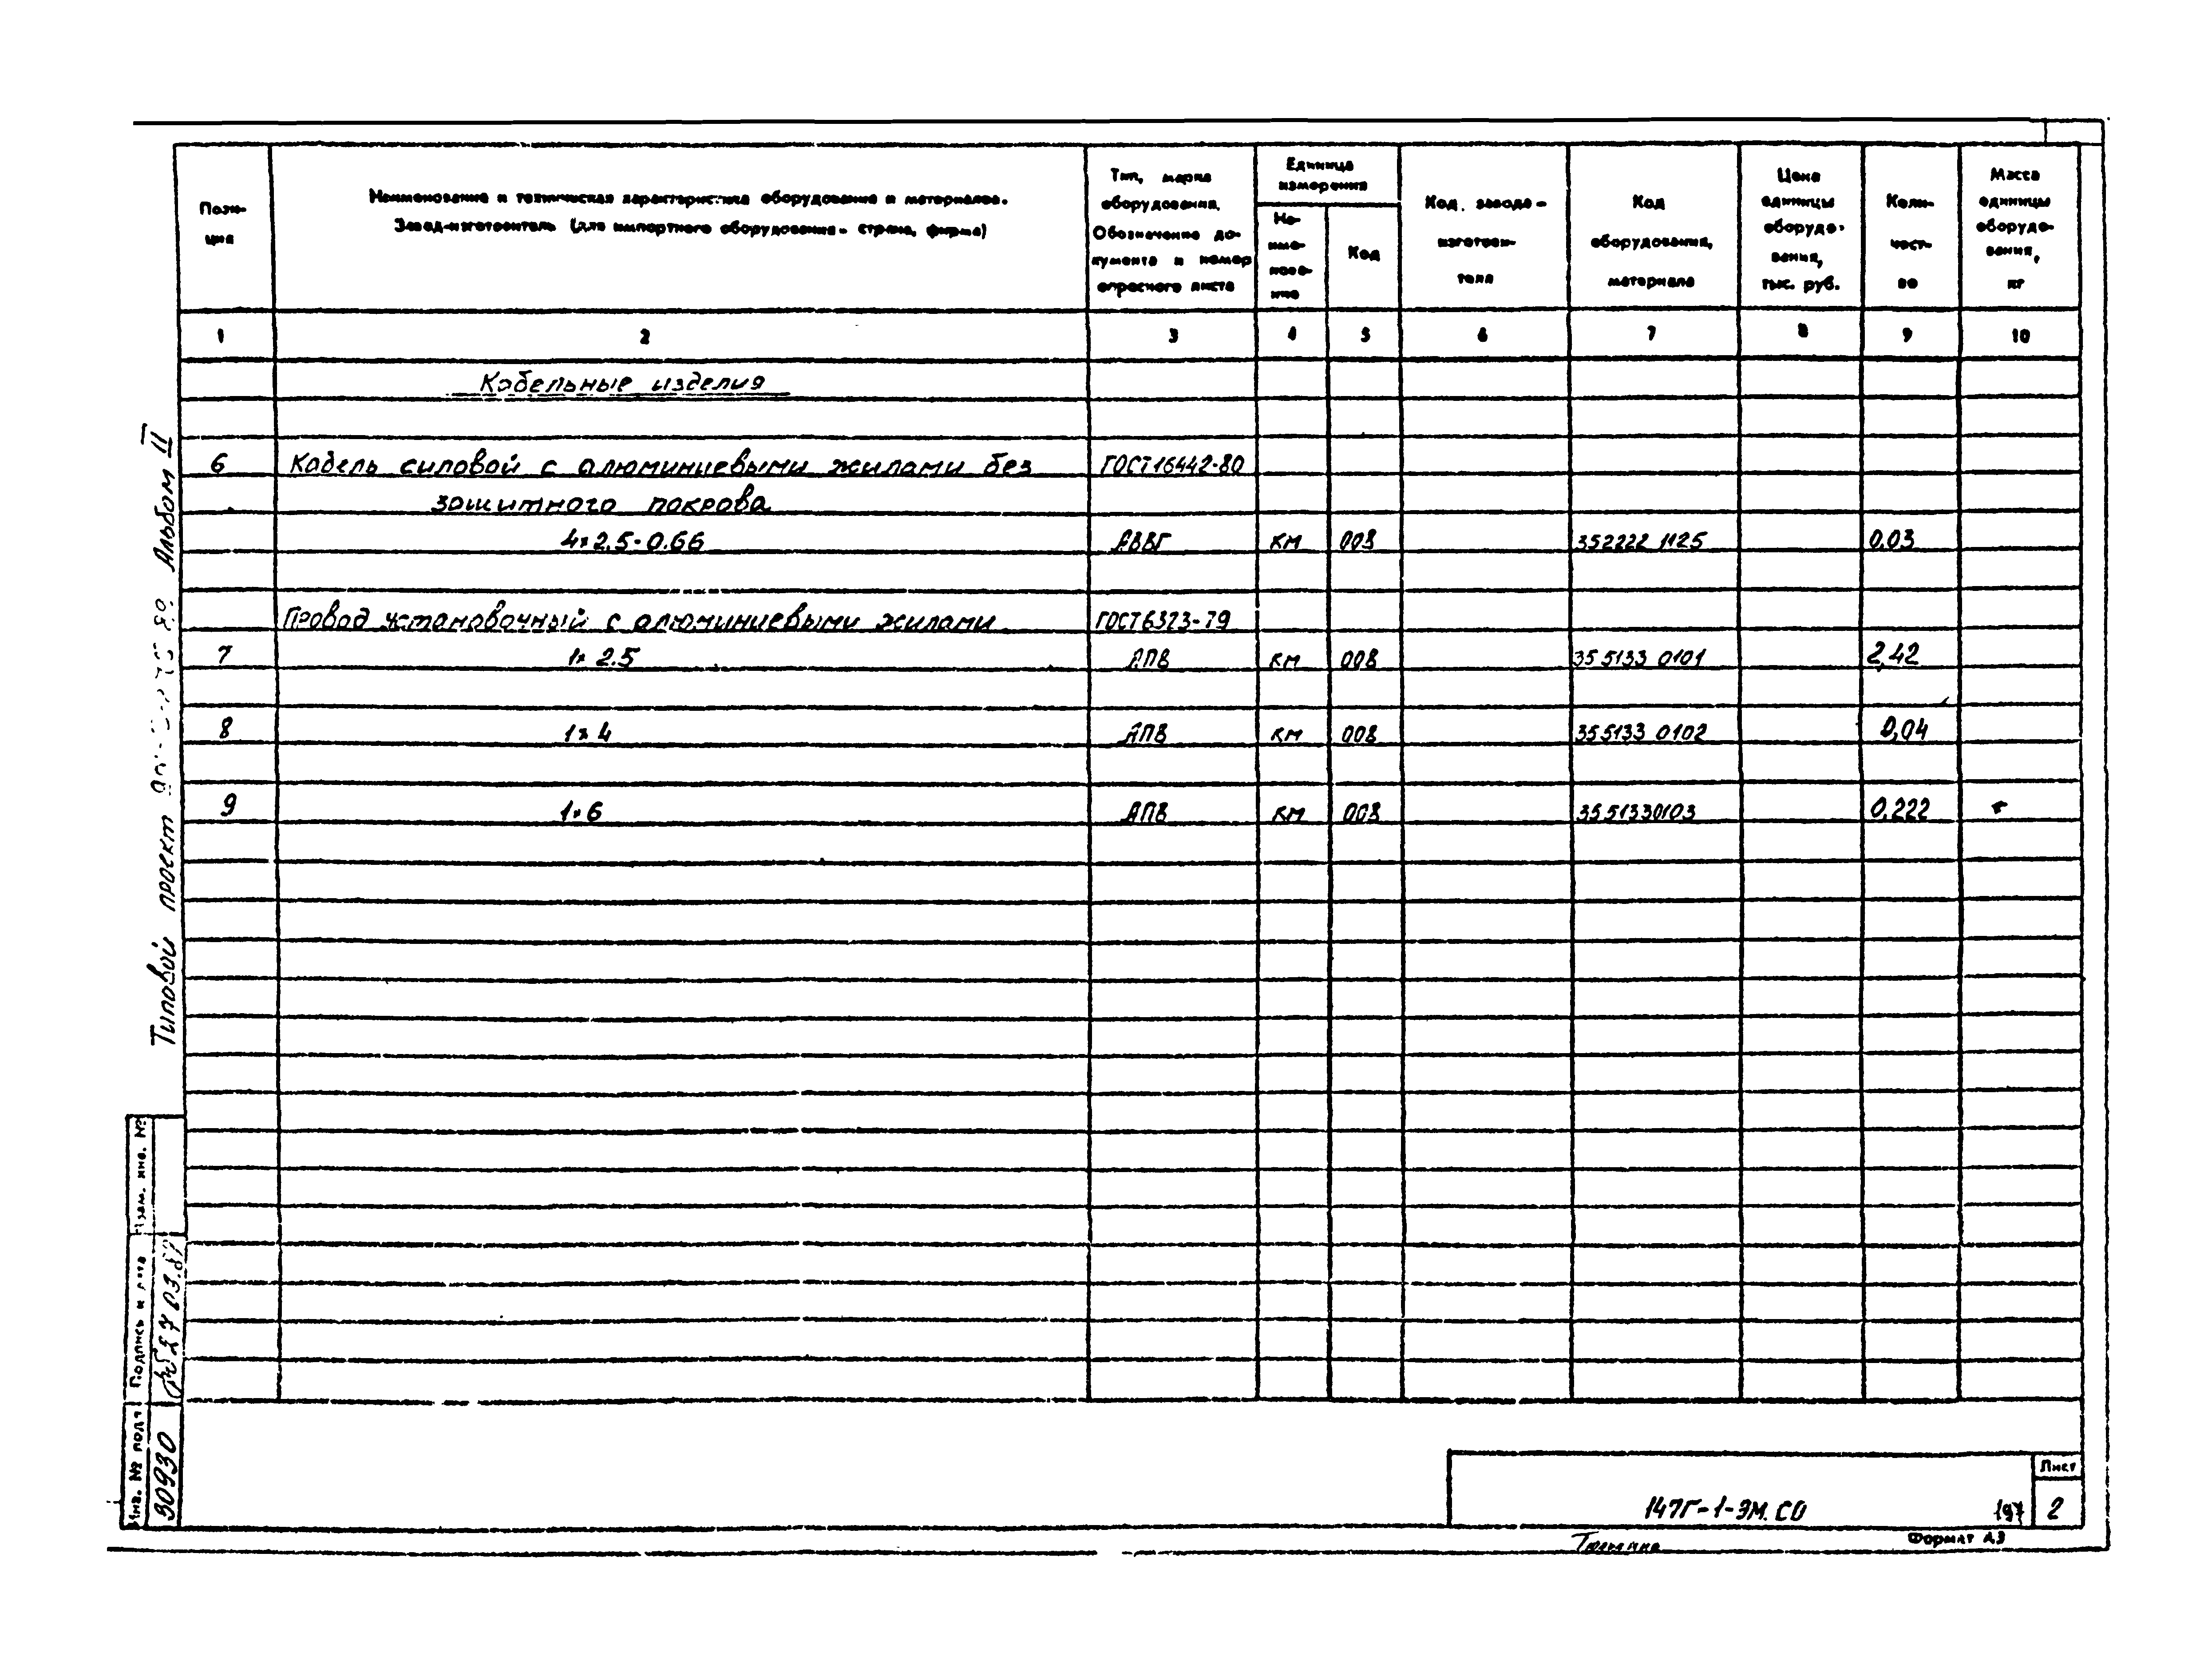 Пози-
ция
Наименование и техническая характеристика оборудования и материалов.
Завод-изготовитель (для импортного оборудования - страна, фирма)
Тип, марка
оборудования.
Обозначение до-
кумента и номер
опросного листа
Единица
измерения
На-
име-
нова-
ние
Код
Код завода-
изготови-
теля
Код
оборудования,
материала
Цена
единицы
оборудо-
вания,
тыс. руб.
Коли-
чест-
во
Масса
единицы
оборудо-
вания,
кг
1 2 3 4 5 6 7 8 9 10
Кабельные изделия
6 Кабель силовой с алюминиевыми жилами без ГОСТ16442-80
защитного покрова
4×2.5-0.66 АВВГ км 008 352222 1125 0,03
Провод установочный с алюминиевыми жилами ГОСТ6323-79
7 1×2.5 АПВ км 008 355133 0101 2,42
8 1×4 АПВ км 008 355133 0102 0,04
9 1×6 АПВ км 008 3551330103 0,222
Типовой проект Альбом II
Взам. инв. №
Подпись и дата
27 03
Инв. № подл.
90930
147Г-1-ЭМ.СО
197
Лист
2
Формат А3